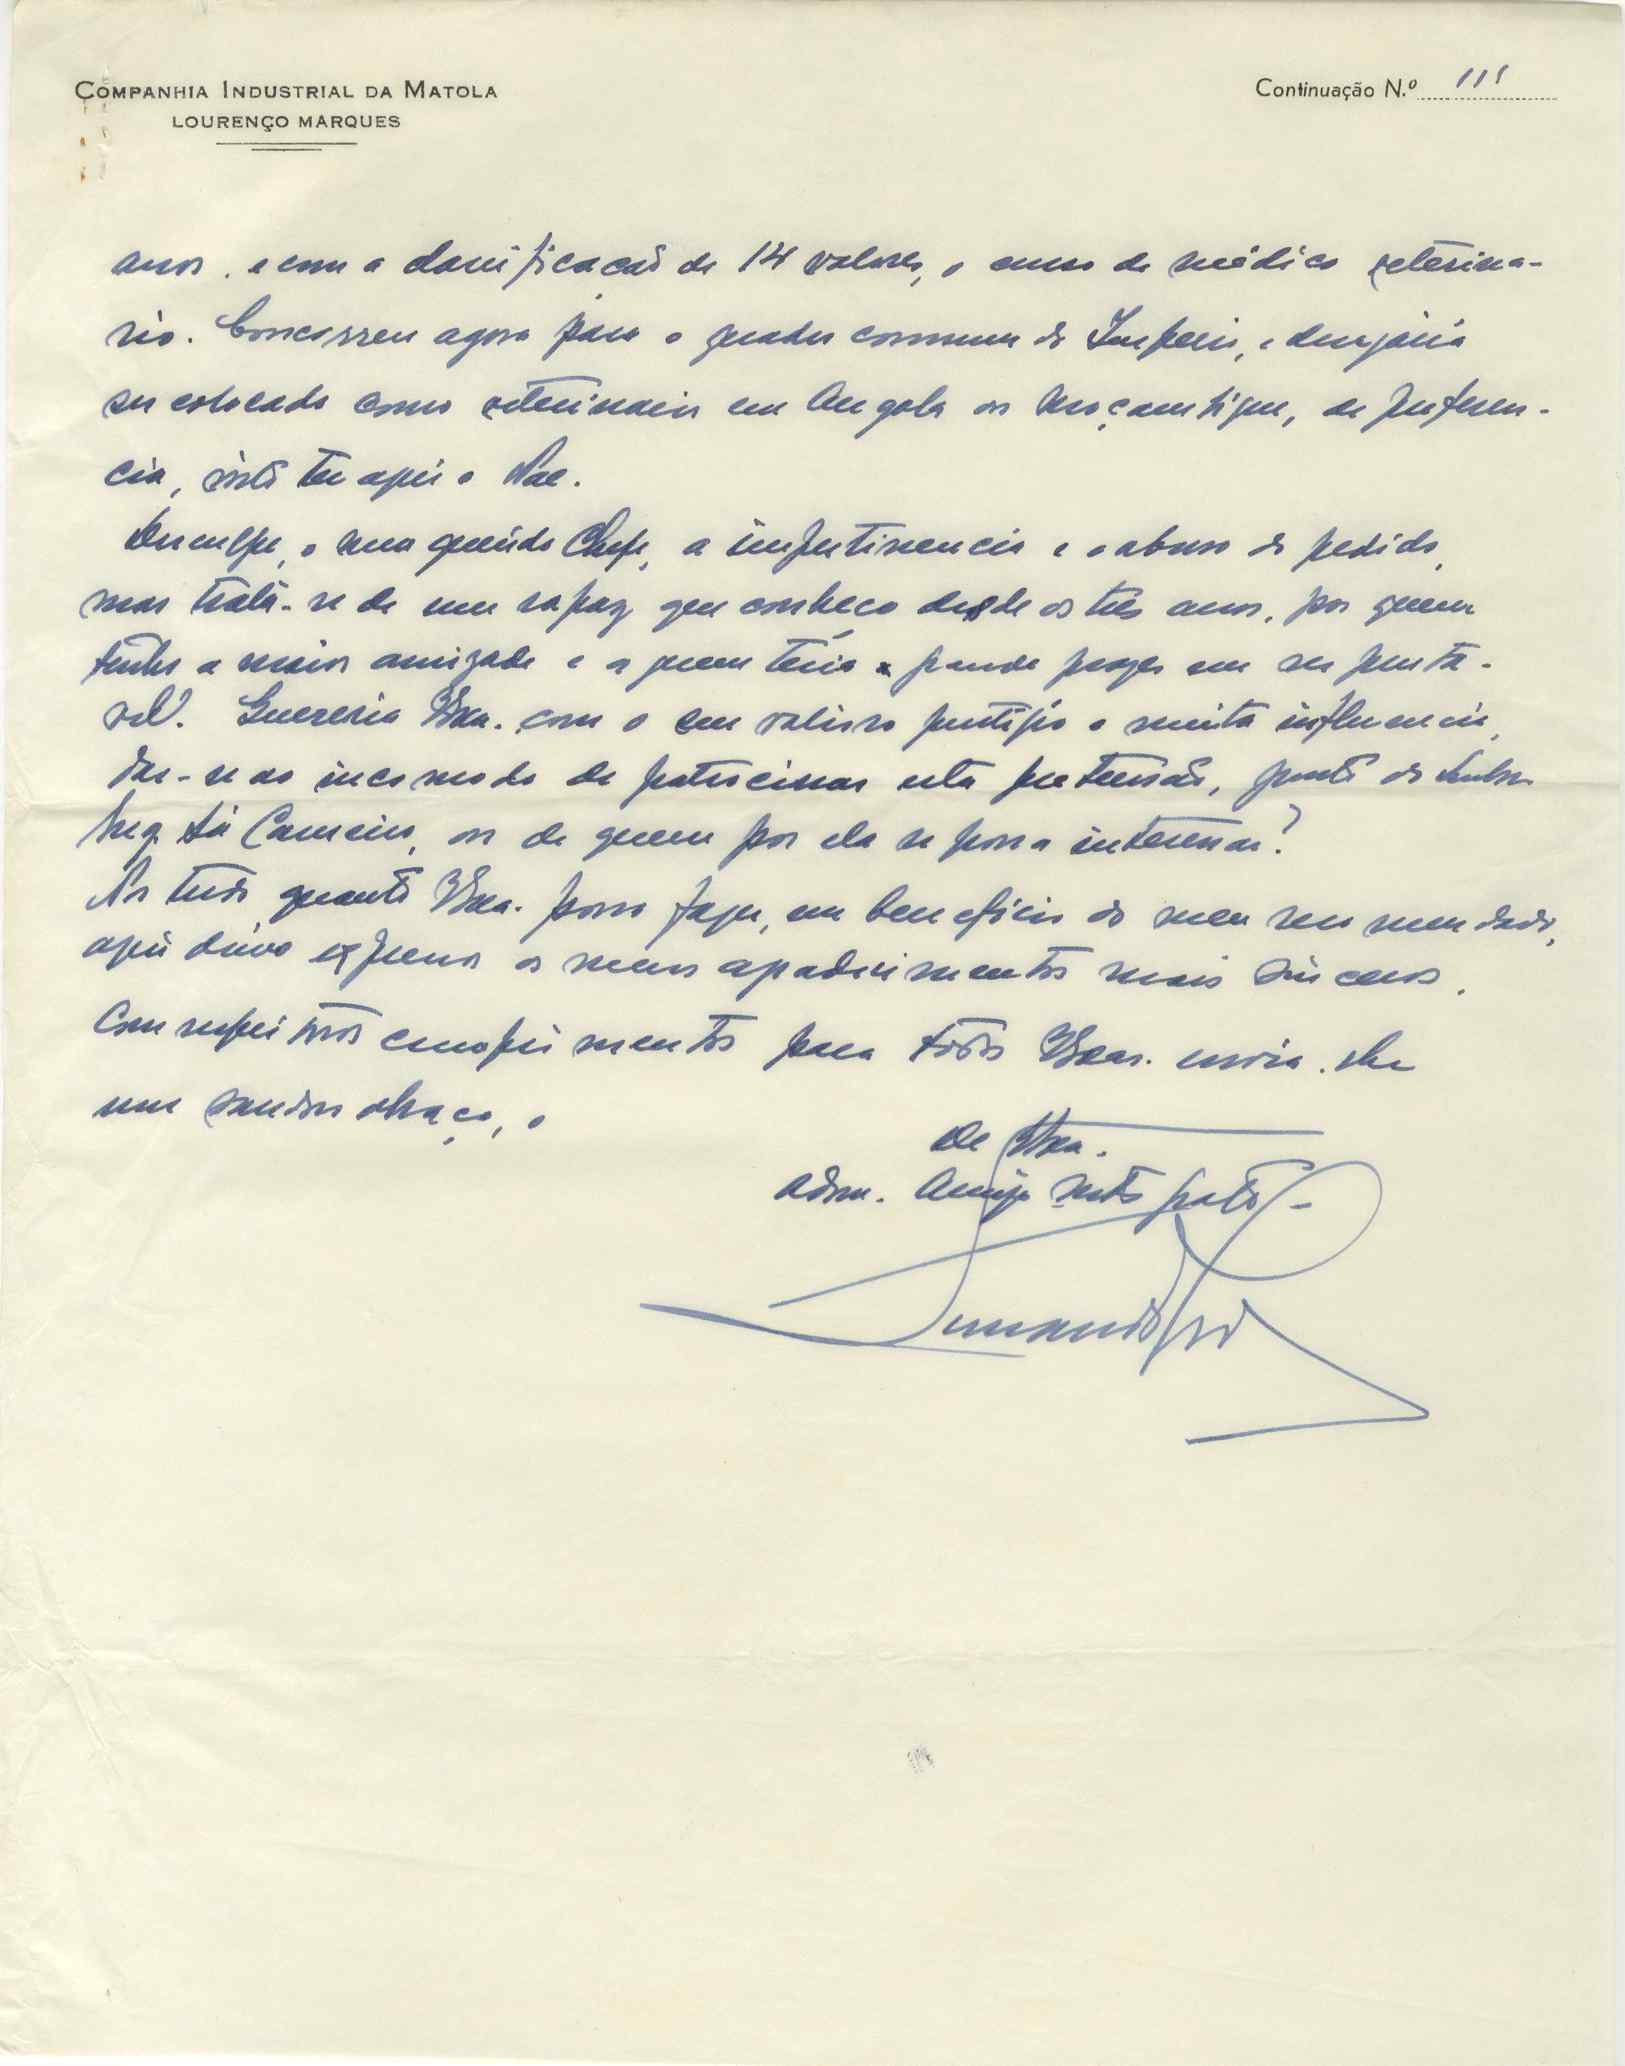 COMPANHIA INDUSTRIAL DA MATOLA
LOURENÇO MARQUES
Continuação N.º 111
anos, e com a classificação de 14 valores, o curso de médico veteriná-
rio. Concorreu agora para o quadro comum do Império, e desejaria
ser colocado como veterinario em Angola ou Moçambique, de preferen-
cia, visto ter aqui o Pae.
Desculpe, o meu querido Chefe, a impertinencia e o abuso do pedido,
mas trata-se de um rapaz que conheço desde os três anos, por quem
tenho a maior amizade e a quem teria grande prazer em ser presta-
vel. Quereria Vexa. com o seu valioso prestigio e muita influencia,
dar-se ao incomodo de patrocinar esta pretensão, junto do Senhor
Eng. Sá Carneiro, ou de quem por ela se possa interessar?
Por tudo quanto Vexa. possa fazer, em beneficio do meu recomendado,
aqui deixo expresso os meus agradecimentos mais sinceros.
Com respeitosos cumprimentos para todos Vexas. envia-lhe
um saudoso abraço, o
De Vexa.
Adm. Amigo Mto grato